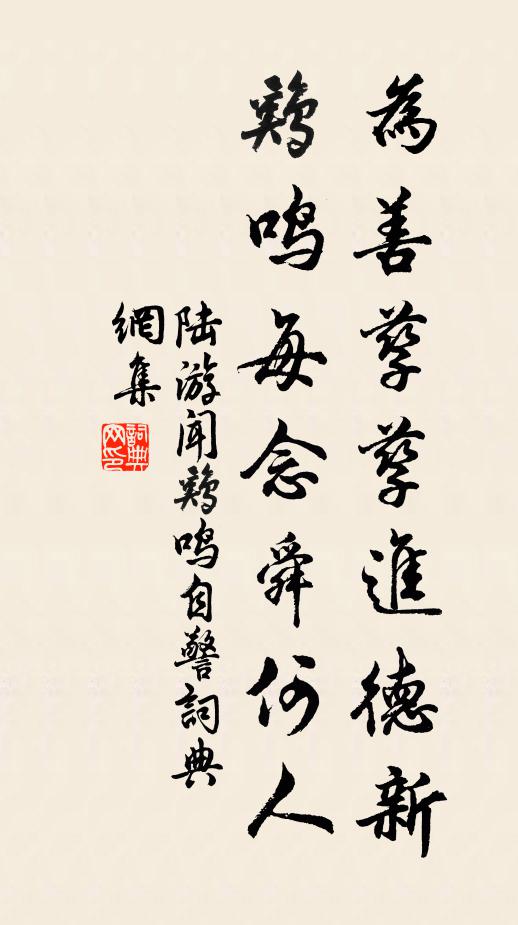 為善孳孳進德新
鷄鳴每念舜何人
陆游闻鷄鳴自警詞典
網集
詞典
网印